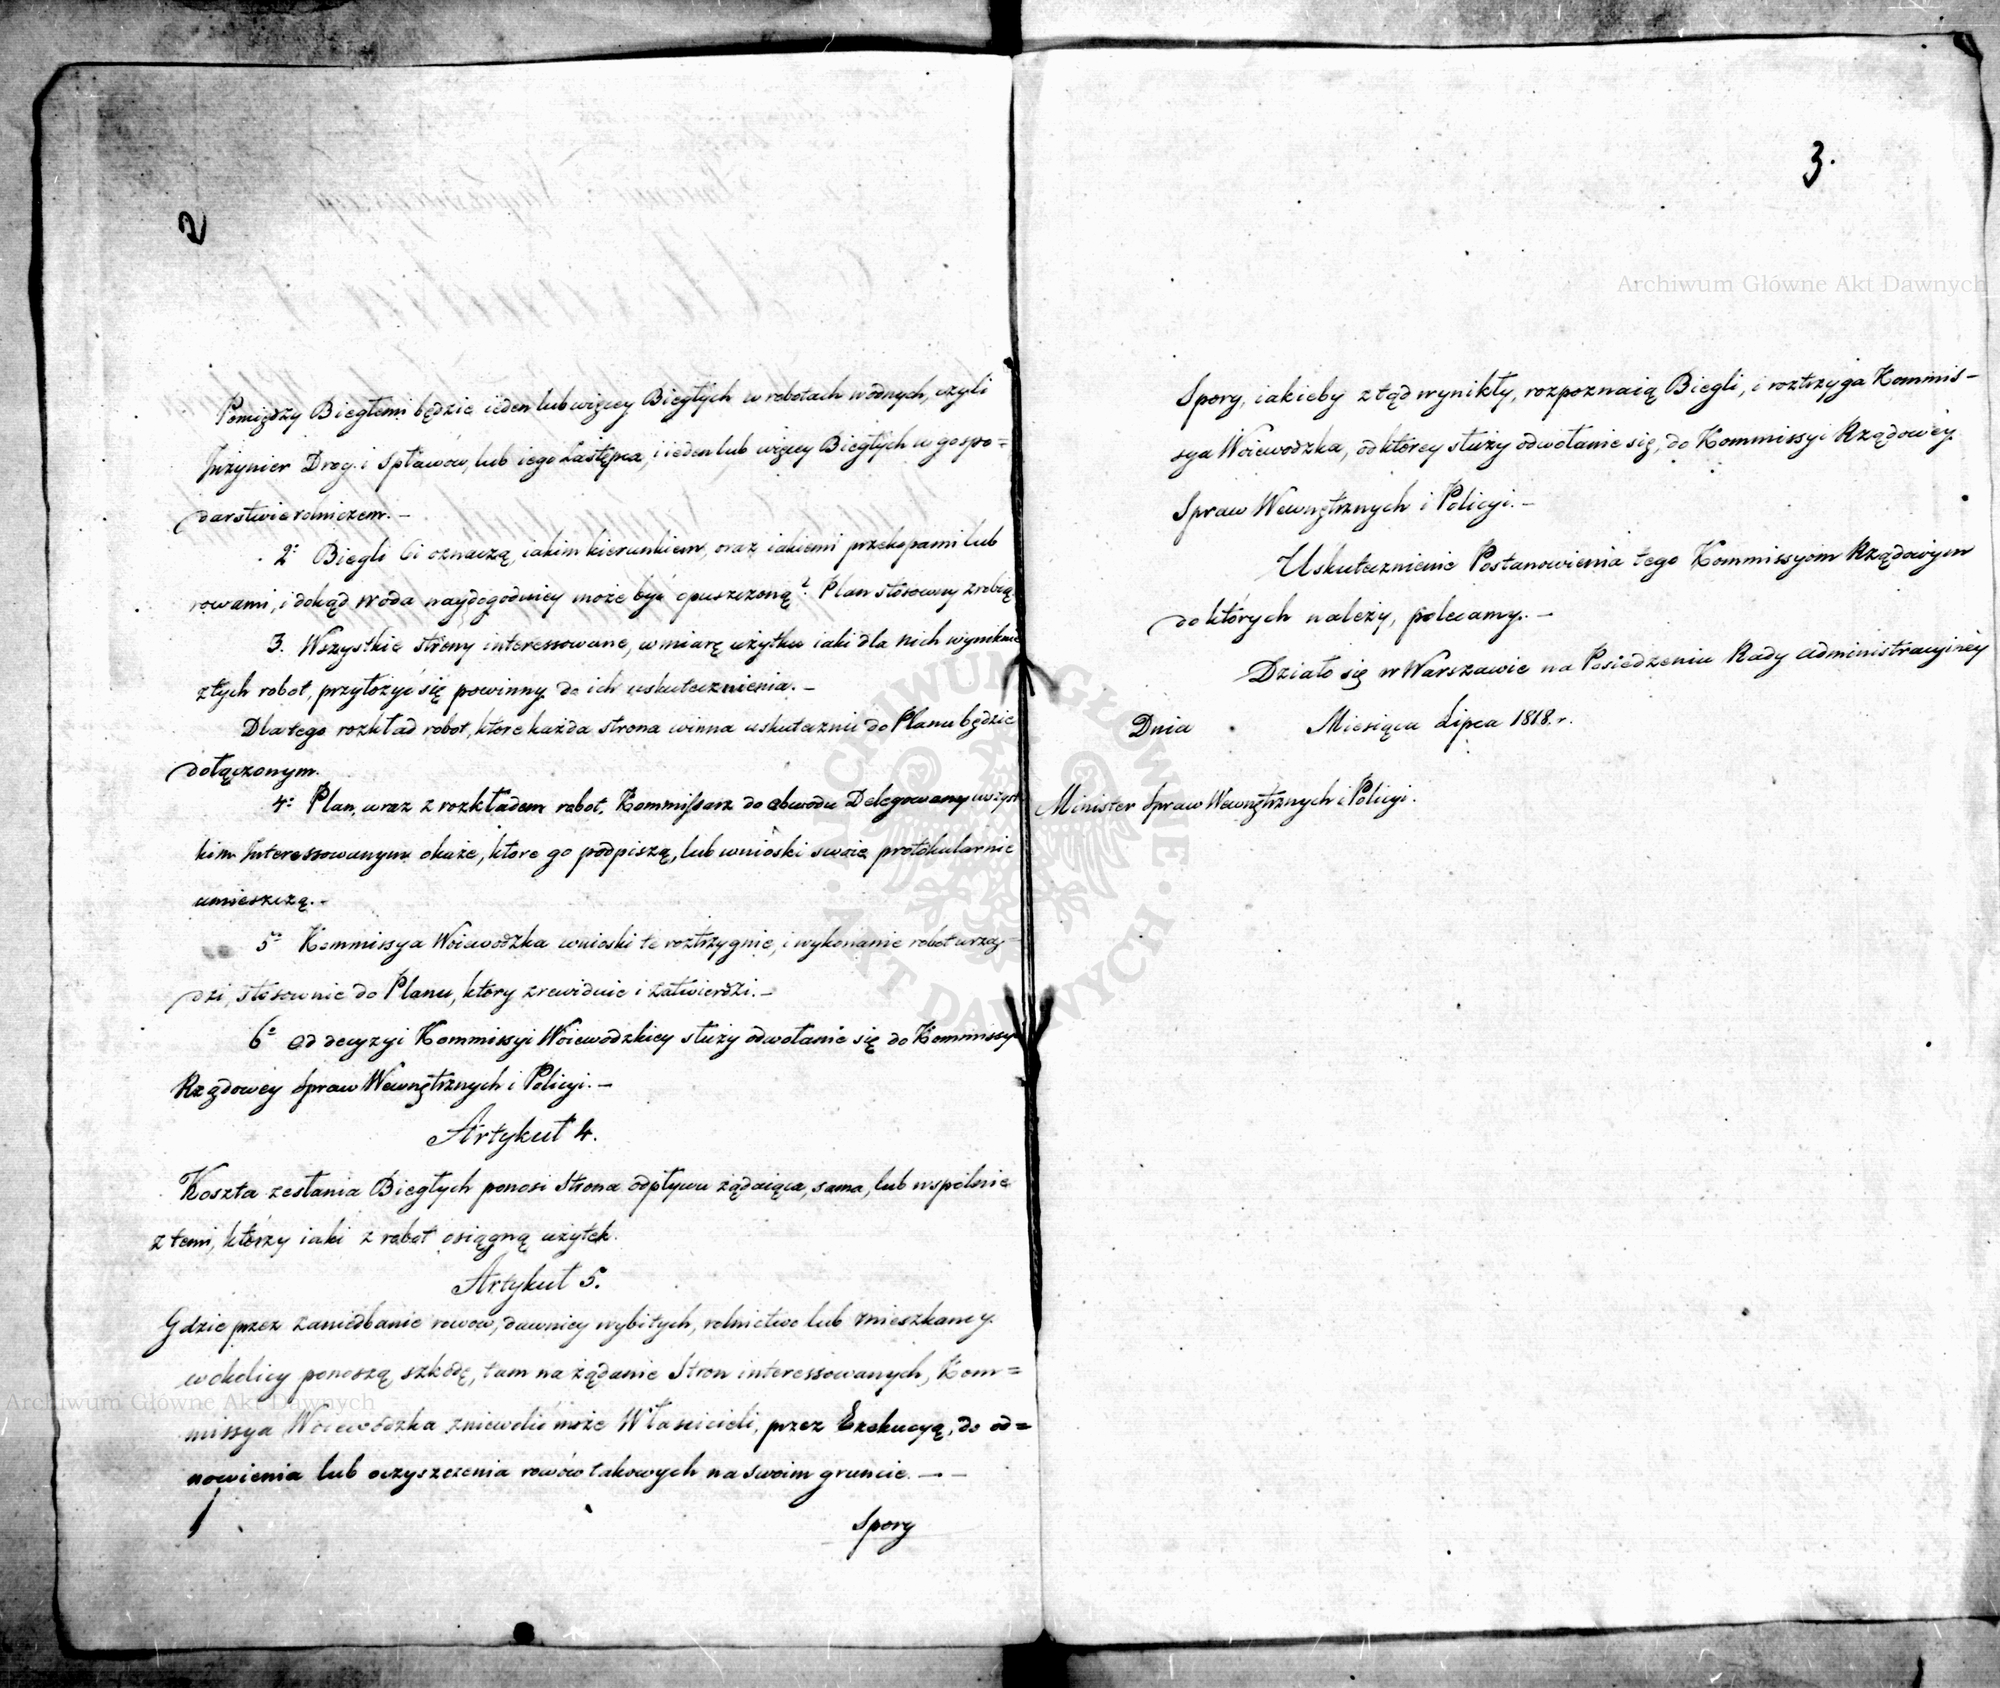 2
Pomiędzy Biegłemi będzie ieden lub więcey Biegłych w robotach wodnych, czyli
Inżynier Drog i Spławow, lub iego Zastępca, i ieden lub więcey Biegłych w gospo=
darstwie rolniczem. –
2º Biegli Ci oznaczą, iakim kierunkiem, oraz iakiemi przekopami lub
rowami, i dokąd woda naydogodniey może być opuszczoną? Plan stosowny zrobią
3. Wszystkie strony interessowane, w miarę użytku iaki dla nich wyniknie
z tych robot, przyłożyć się powinny do ich uskutecznienia. –
Dla tego rozkład robot, ktore każda strona winna uskutecznić do Planu będzie
dołączonym.
4º Plan, wraz z rozkładem robot, Kommissarz do obwodu Delegowany wszyst
kim Interessowanym okaże, ktore go podpiszą, lub wnioski swoie protokularnie
umieszczą. –
5º Kommissya Woiewodzka wnioski te roztrzygnie, i wykonanie robot urzą–
dzi, stosownie do Planu, ktory zrewiduie i zatwierdzi. –
6º Od decyzyi Kommissyi Woiewodzkiey służy odwołanie się do Kommissyi
Rządowey Spraw Wewnętrznych i Policyi. –
Artykuł 4.
Koszta zesłania Biegłych ponosi Strona odpływu żądaiąca, sama, lub wspolnie
z temi, ktorzy iaki z robot osiągną użytek.
Artykuł 5.
Gdzie przez zaniedbanie rowow, dawniey wybitych, rolnictwo lub mieszkancy
w okolicy ponoszą szkodę, tam na żądanie Stron interessowanych, Kom=
missya Woiewodzka zniewolić może Właścicieli, przez Exekucyą, do od=
nowienia lub oczyszczenia rowów takowych na swoim gruncie. – –
Spory
3.
Spory, iakieby ztąd wynikły, rozpoznaią Biegli, i roztrzyga Kommis–
sya Woiewodzka, od ktorey służy odwołanie się, do Kommissyi Rządowey
Spraw Wewnętrznych i Policyi. –
Uskutecznienie Postanowienia tego Kommissyom Rządowym
do których należy, polecamy. –
Działo się w Warszawie na Posiedzeniu Rady Administracyiney
Dnia Miesiąca Lipca 1818. r.
Minister Spraw Wewnętrznych i Policyi.
Archiwum Główne Akt Dawnych
Archiwum Główne Akt Dawnych
ARCHIWUM GŁÓWNE · AKT DAWNYCH ·